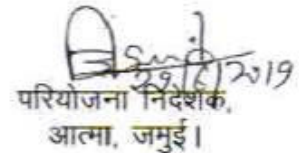 29/6/2019
परियोजना निदेशक,
आत्मा, जमुई।